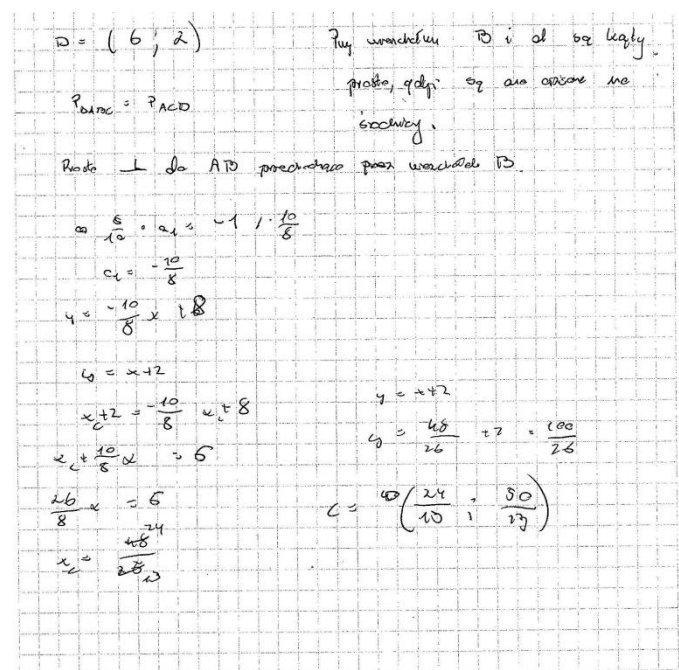 D = ( 6 ; 2 )
Przy wierzchołku B i d są kąty
proste, gdyż są one opisane na
średnicy.
P_{ΔABC} = P_{ACD}
Prosta ⊥ do AB przechodząca przez wierzchołek B.
\frac{8}{10} · a_1 = -1 / · \frac{10}{8}
a_1 = -\frac{10}{8}
y = \frac{-10}{8} x + 8
y = x+2
x_c+2 = \frac{-10}{8} x_c + 8
x_c + \frac{10}{8} x = 6
\frac{26}{8} x = 6
x_c = \frac{48}{26} 24 13
y = x+2
y = \frac{48}{26} + 2 = \frac{100}{26}
C = ( \frac{24}{13} ; \frac{50}{13} )